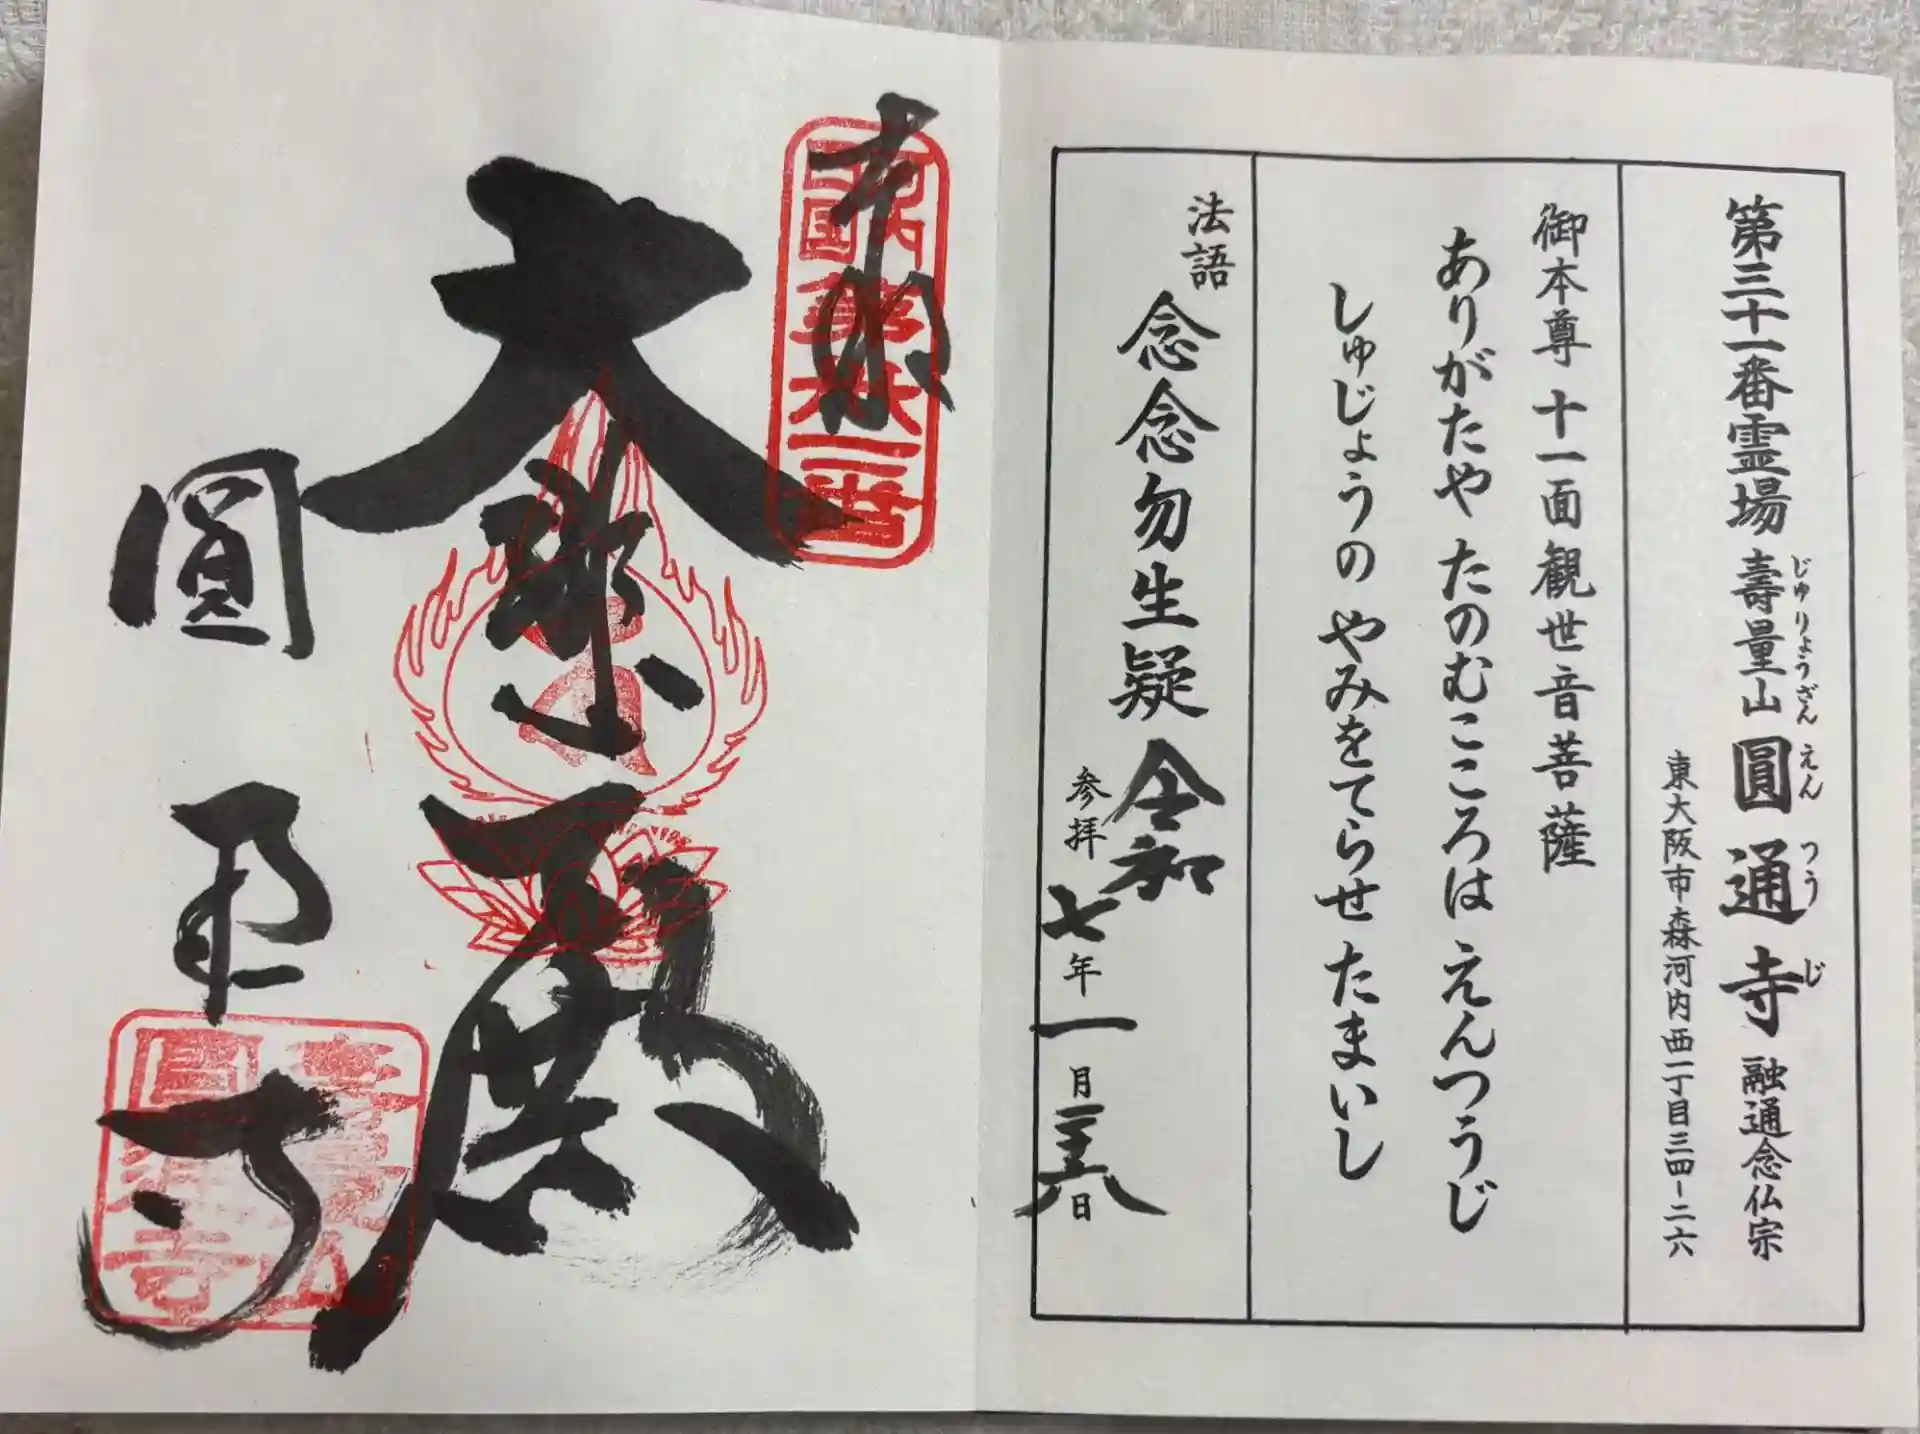 第三十一番霊場 壽量山 圓通寺 融通念仏宗
じゅりょうざん えんつうじ
東大阪市森河内西一丁目三四-二六
御本尊 十一面観世音菩薩
ありがたや たのむこころは えんつうじ
しゅじょうの やみをてらせ たまいし
法語 念念勿生疑 令和
参拝 七年一月二十八日
奉拝
河内
西国
第卅一番
大悲閣
圓通寺
壽量山
圓通寺